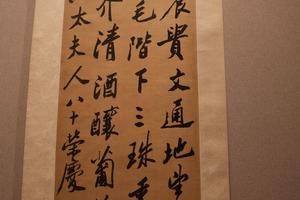 貴文通地望
毛階下三珠
介清酒釀葡
太夫人八十榮慶